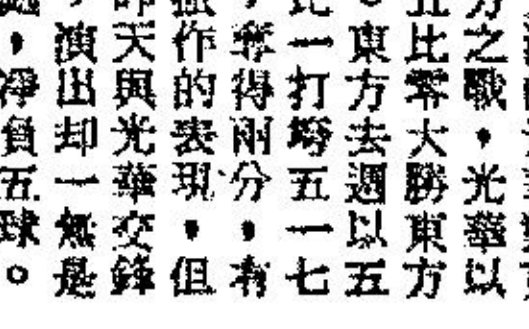 方之戰，光華以
五比零大勝東方
。東方去週以五
比一打垮五一七
，奪得兩分，有
振作的表現，但
昨天與光華交鋒
，演出却一無是
處，淨負五球。